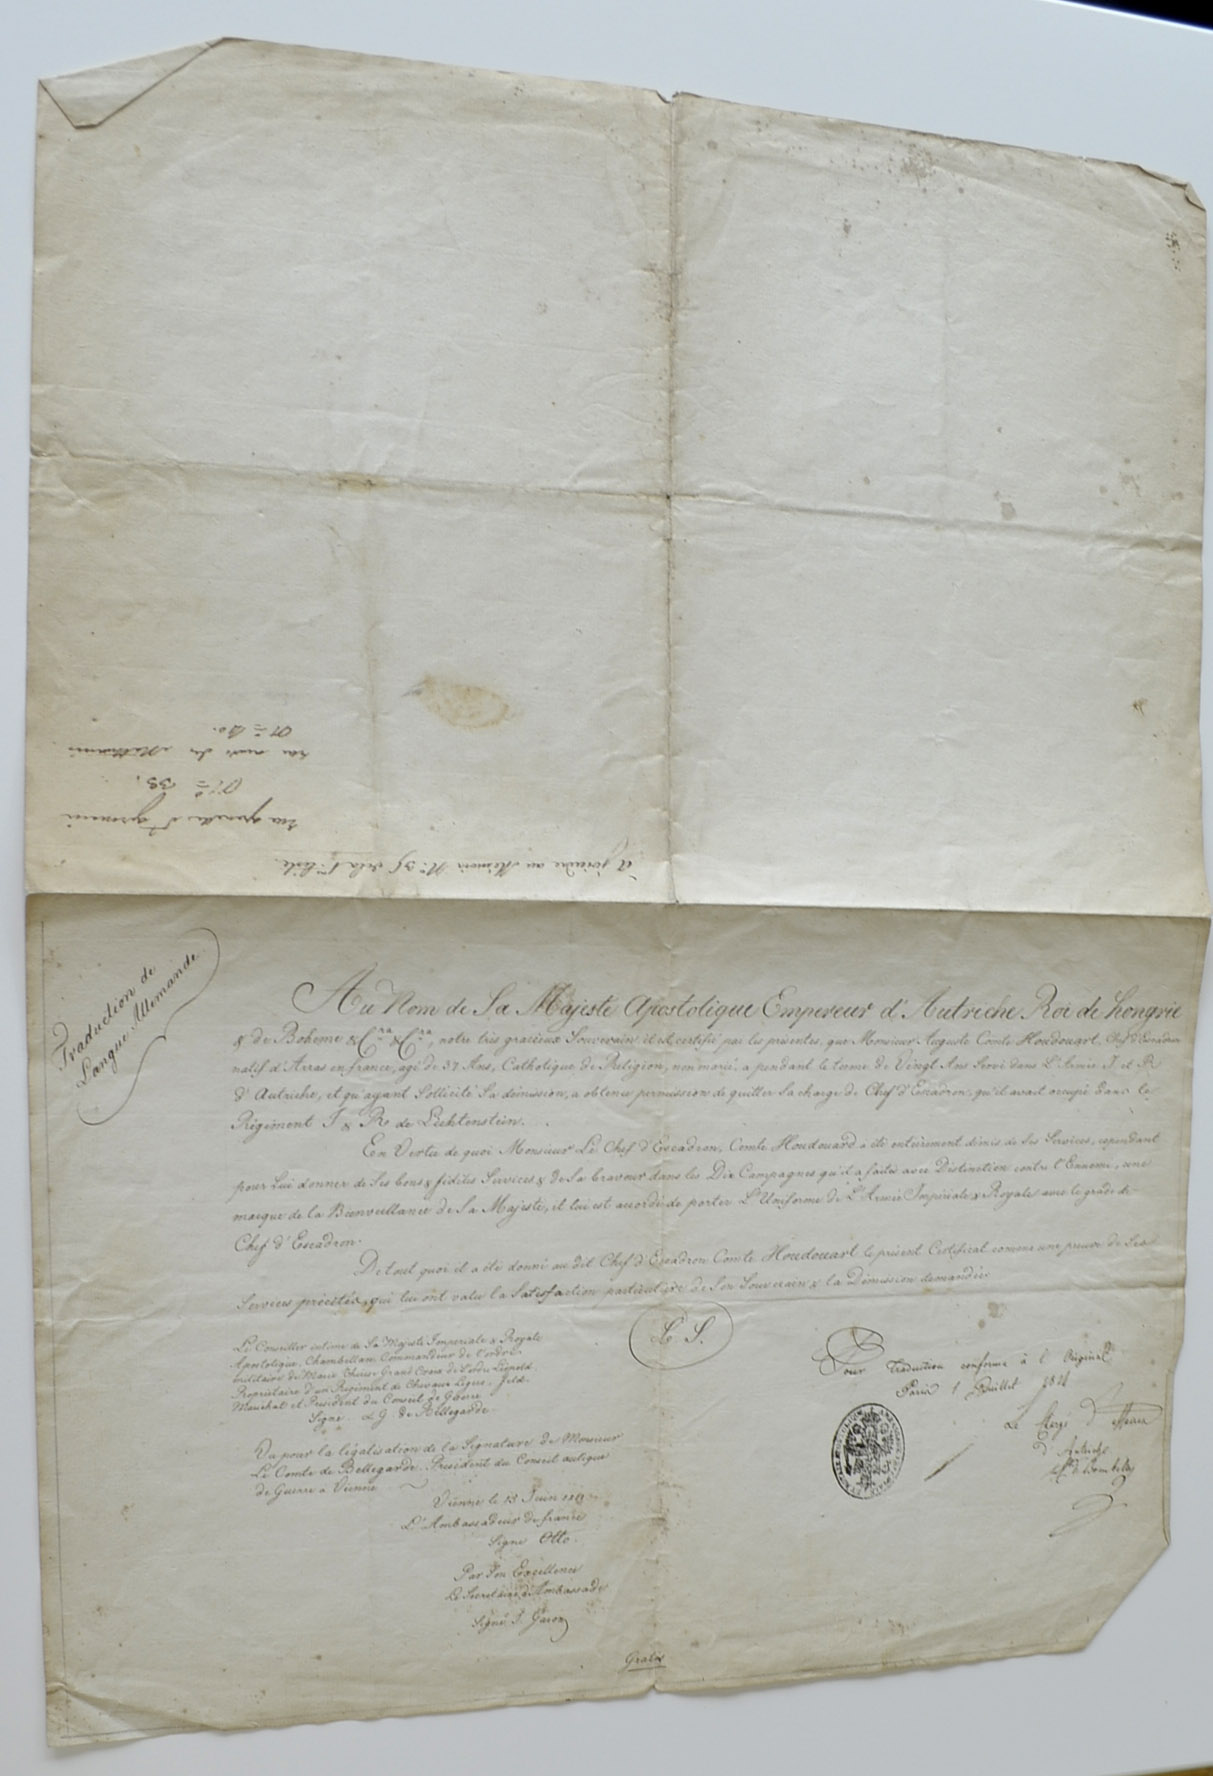 Traduction de
Langue Allemande
Au Nom de Sa Majesté Apostolique Empereur d'Autriche Roi de hongrie
& de Boheme &c.ra &c.ra, notre très gracieux Souverain il est certifié par les présentes, que Monsieur Auguste Comte Houdouart, Chef d'Escadron
natif d'Arras en france, agé de 37 Ans, Catholique de Religion, non marié, a pendant le terme de Vingt Ans Servi dans L'Armée I. et R.
d'Autriche, et qu'ayant Sollicité Sa démission, a obtenu permission de quitter Sa charge de Chef d'Escadron, qu'il avait occupé dans le
Régiment I & R. de Lichtenstein.
En Vertu de quoi Monsieur Le Chef d'Escadron, Comte Houdouard a été entièrement démis de Ses Services, cependant
pour Lui donner de Ses bons & fidèles Services & de Sa bravour dans les Dix Campagnes qu'il a faites avec Distinction contre l'Ennemi, une
marque de la Bienveillance de Sa Majesté, il lui est accordé de porter L'Uniforme de L'Armée Impériale & Royale avec le grade de
Chef d'Escadron.
De tout quoi il a été donné au dit Chef d'Escadron Comte Houdouart le présent Certificat comme une preuve de Ses
Services précités, qui lui ont valu la Satisfaction particulière de Son Souverain & la Démission demandée
L. S.
Le Conseiller intime de Sa Majesté Imperiale & Royale
Apostolique, Chambellan, Commandeur de l'ordre
militaire de Marie Therese Grand Croix de L'ordre Léopold,
Propriétaire d'un Régiment de Chevaux Légers, feld-
Maréchal et President du Conseil de Guerre
Signé. de Bellegarde.
Vu pour la légalisation de la Signature de Monsieur
Le Comte de Bellegarde. Président du Conseil aulique
de Guerre à Vienne
Vienne le 15 Juin
L'Ambassadeur de france
Signé Otto.
Par Son Excellence
Le Secrétaire d'Ambassade
Signé
Pour Traduction conforme à l'Original
Paris 1 Juillet
Le
d'Autriche
Gratis
à joindre au Mémoire N.o de la 1.re liste.
rue grande
N.o 38.
rue neuve des Mathurins
N.o 20.